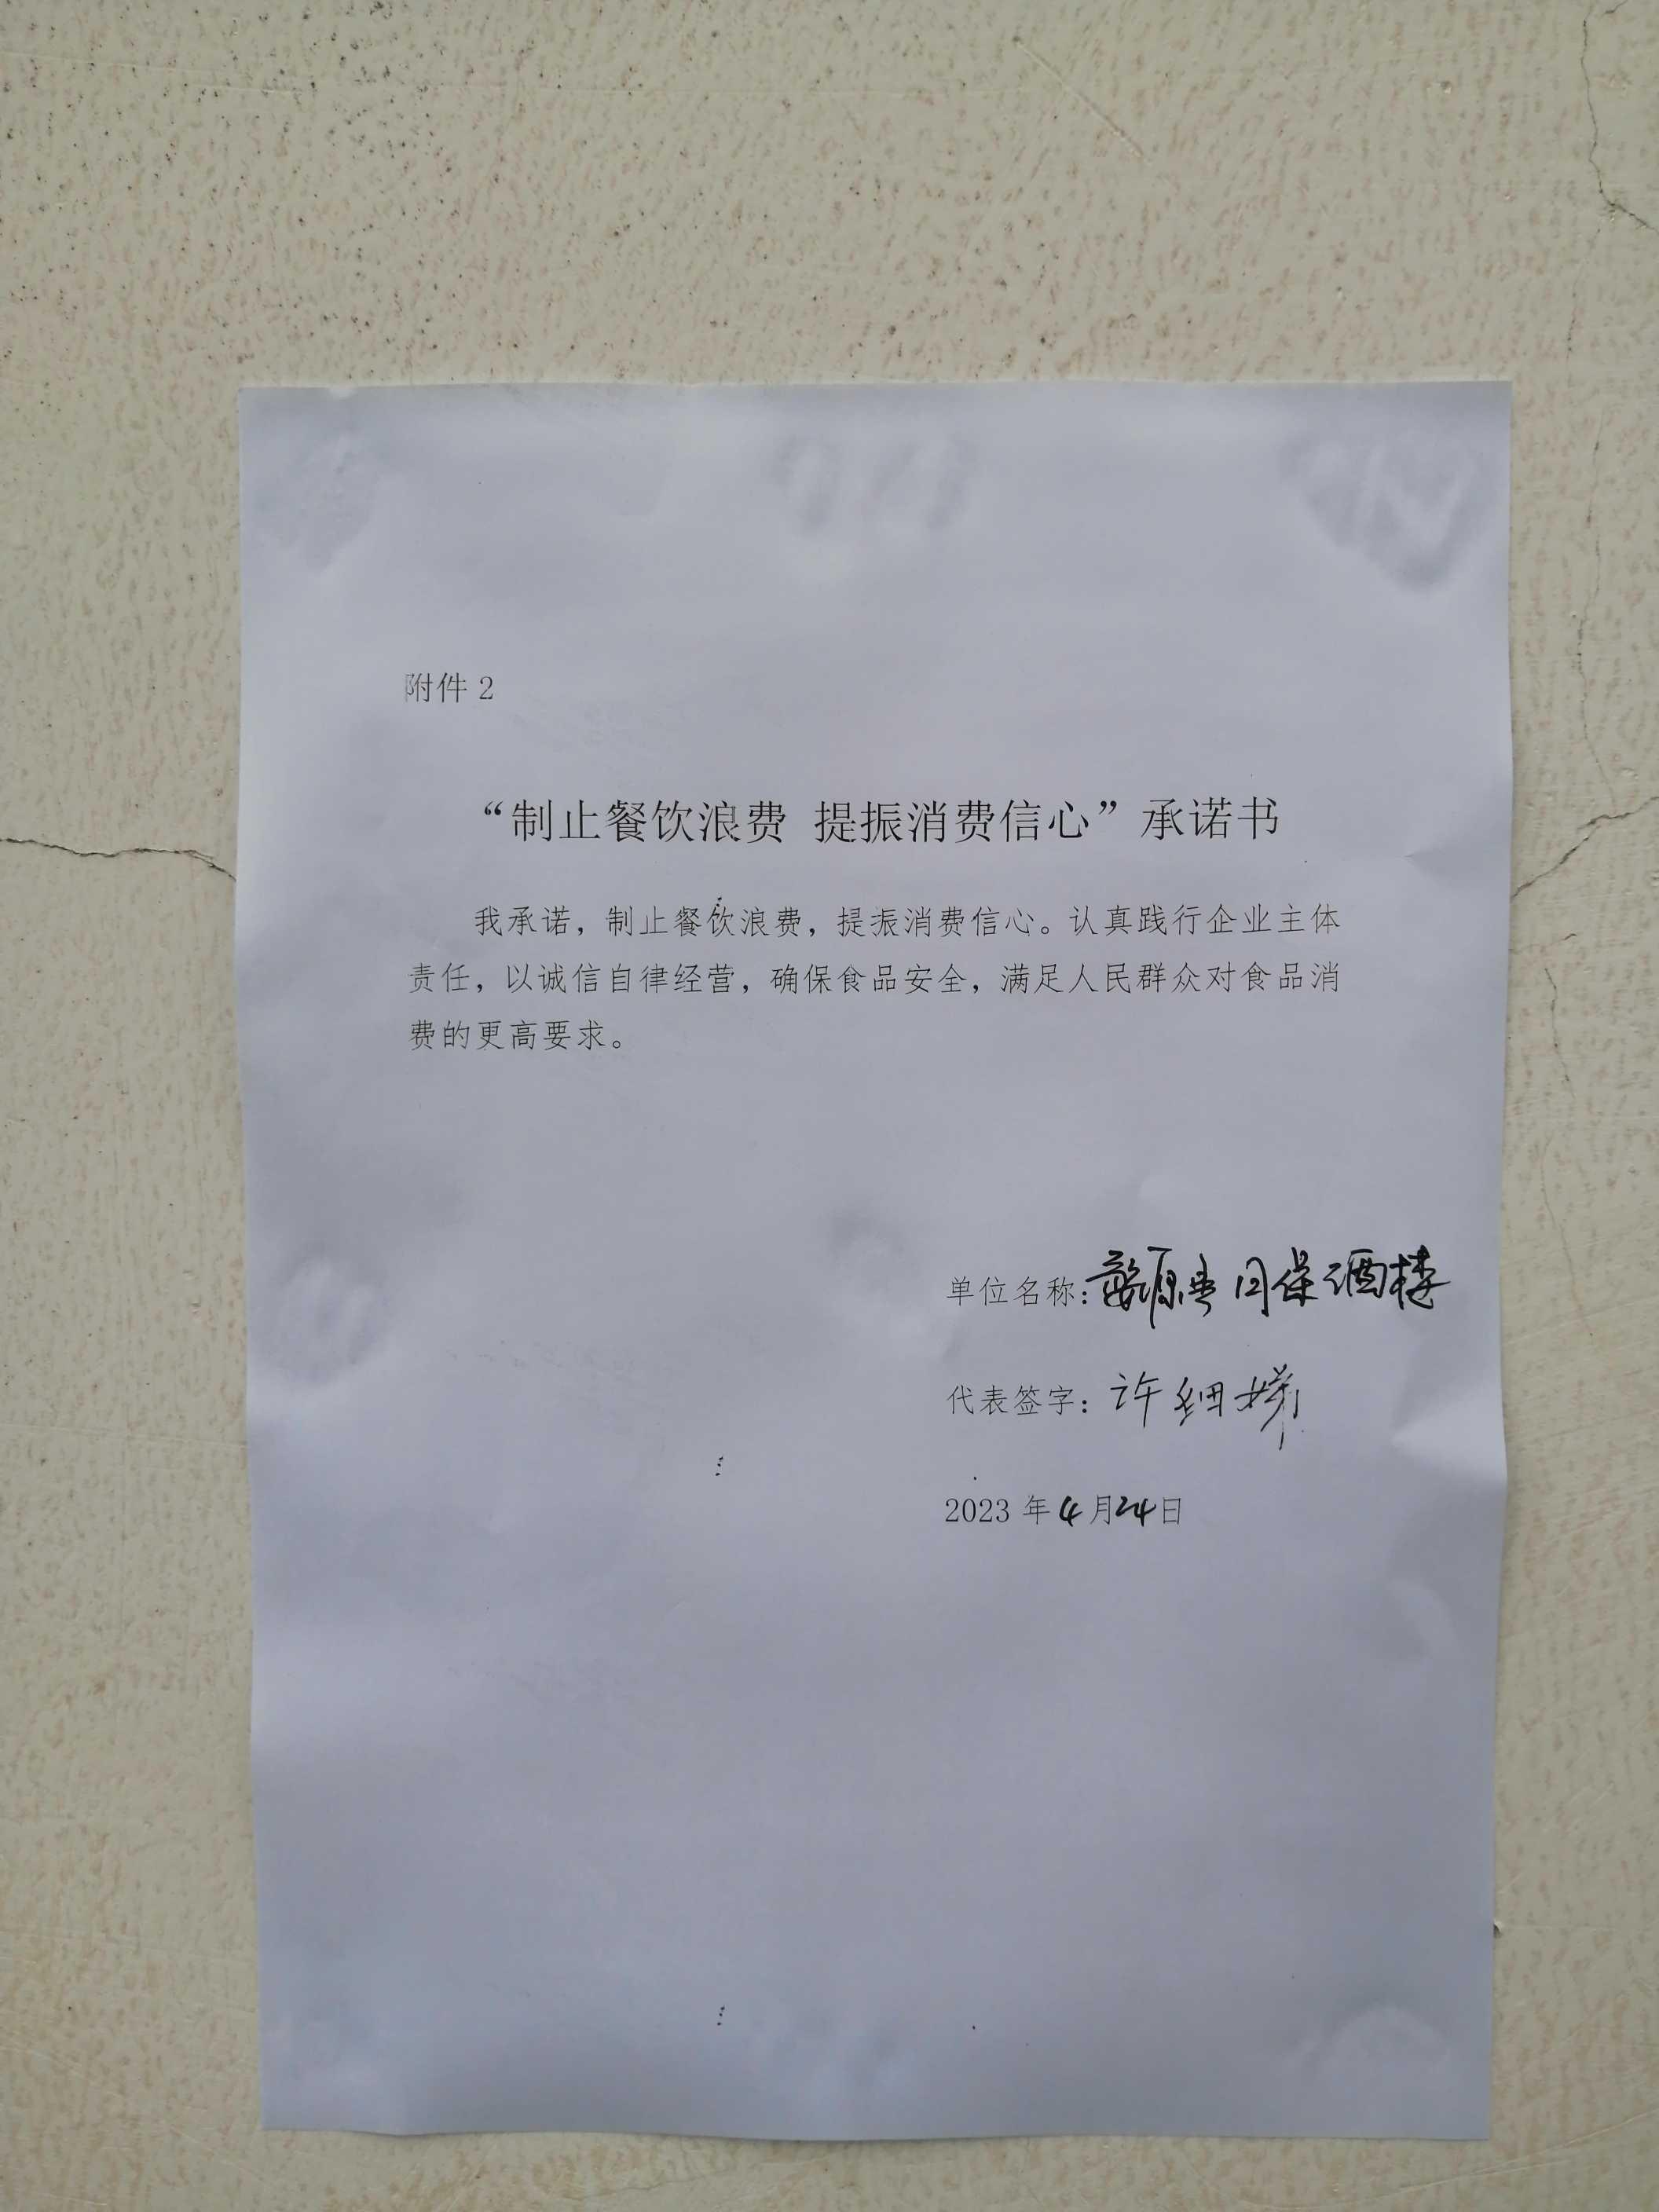 附件 2
“制止餐饮浪费 提振消费信心”承诺书
我承诺，制止餐饮浪费，提振消费信心。认真践行企业主体
责任，以诚信自律经营，确保食品安全，满足人民群众对食品消
费的更高要求。
单位名称：婺源县同保酒楼
代表签字：许细娣
2023 年 4 月 24 日